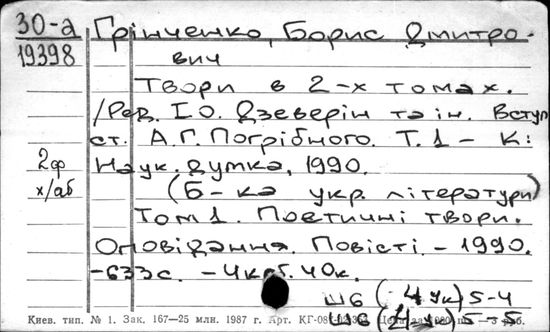 30-а Грінченко, Борис Дмитро-
19398 вич
Твори в 2-х томах.
/Ред. І.О. Дзеверін та ін. Вступ
ст. А.Г. Погрібного. Т.1 – К:
2ф Наук. думка, 1990.
х/аб (Б-ка укр. літератури)
Том 1. Поетичні твори.
Оповідання. Повісті. – 1990.
-633с. – 4крб. 40к.
Ш6 (4Ук) 5-4
Ш6 (4Ук) 5-5
Киев. тип. № 1. Зак. 167—25 млн. 1987 г. Арт. КГ-08